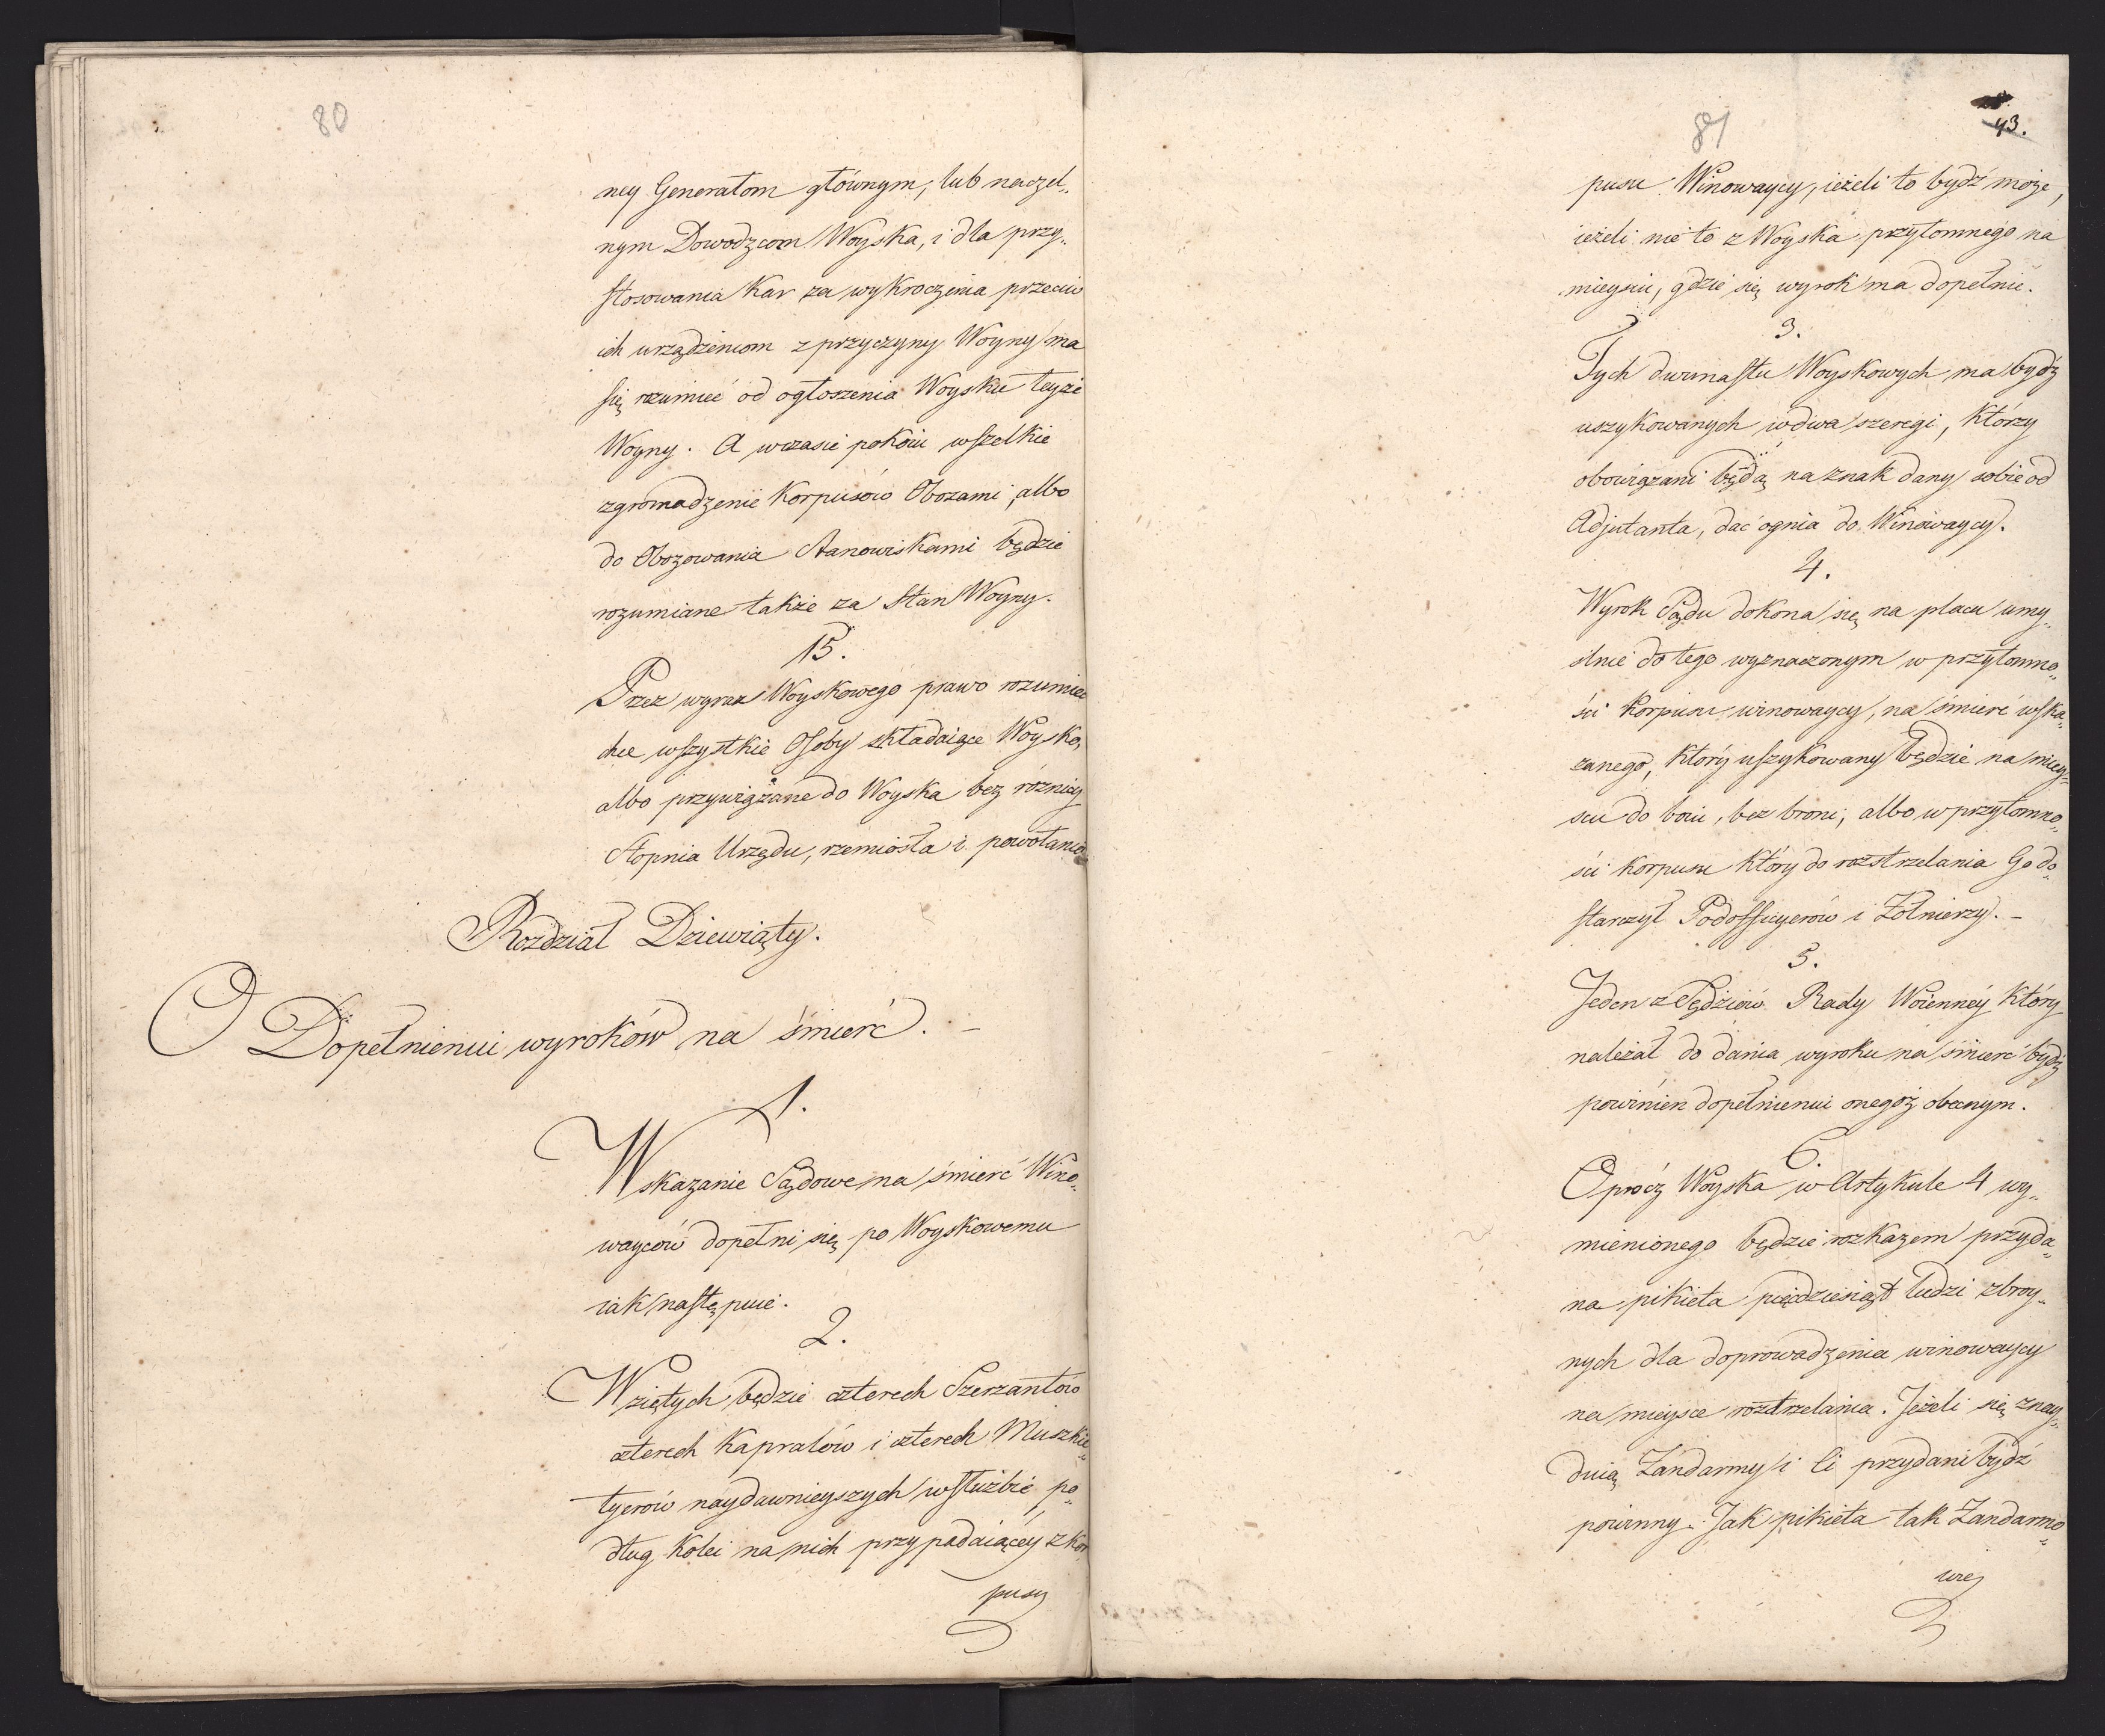 80
ney Generałom głównym, lub naczel„
nym Dowodzcom Woyska, i dla przy„
stosowania Kar za wykroczenia przeciw
ich urządzeniom z przyczyny Woyny ma
się rozumieć od ogłoszenia Woysku teyże
Woyny. A wczasie pokoiu wszelkie
zgromadzenie Korpusów Obozami, albo
do Obozowania Stanowiskami będzie
rozumiane także za Stan Woyny.
15.
Przez wyraz Woyskowego prawo rozumieć
chce wszystkie Osoby składaiące Woysko,
albo przywiązane do Woyska bez różnicy
Stopnia Urzędu, rzemiosła i powołania
Rozdział Dziewiąty.
O Dopełnieniu wyroków na śmierć. –
1.
Wskazanie Sądowe na śmierć Wino„
waycow dopełni się po Woyskowemu
iak następuie.
2.
Wziętych będzie czterech Szerzantow
czterech Kapralów i czterech Muszkie„
tyerow naydawnieyszych w służbie, po„
dług Kolei na nich przypadaiącey z Kor
pusu
28.
43.
81
pusu Winowaycy, ieżeli to bydź może,
ieżeli nie to z Woyska przytomnego na
mieyscu, gdzie się wyrok ma dopełnić.
3.
Tych dwunastu Woyskowych ma bydź
uszykowanych w dwa szeregi, którzy
obowiązani będą na znak dany sobie od
Adjutanta, dać ognia do Winowaycy.
4.
Wyrok Sądu dokona się na placu umy„
ślnie do tego wyznaczonym w przytomno„
ści Korpusu winowaycy, na śmierć wska„
zanego, który uszykowany będzie na miey„
scu do boiu, bez broni, albo w przytomno„
ści Korpusu który do rozstrzelania Go do„
starczył Podofficyerów i Żołnierzy. –
5.
Jeden z Sędziów Rady Woienney który
należał do dania wyroku na śmierć bydź
powinien dopełnieniu onegoż obecnym.
6.
Oprócz Woyska w Artykule 4 wy„
mienionego będzie rozkazem przyda„
na pikieta pięćdziesiąt ludzi zbroy„
nych dla doprowadzenia winowaycy
na mieysce rozstrzelania. Jeżeli się znay„
duią Żandarmy i Ci przydani bydź
powinny. Jak pikieta tak Żandarmo„
wie